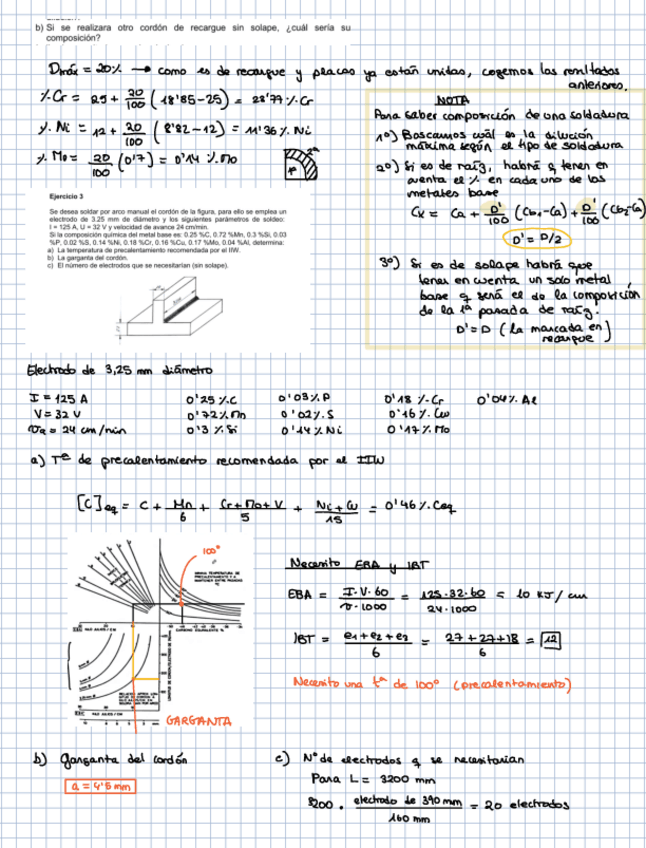 b) Si se realizara otro cordón de recargue sin solape, ¿cuál sería su
composición?
Dmáx = 20% → como es de recargue y placas ya están unidas, cogemos los resultados
anteriores.
%Cr = 25 + 20/100 (18'85-25) = 23'77 %Cr
%Ni = 12 + 20/100 (8'82-12) = 11'36 % Ni
% Mo = 20/100 (0'7) = 0'14 % Mo
NOTA
Para saber composición de una soldadura
1º) Buscamos cuál es la dilución
máxima según el tipo de soldadura
2º) Si es de raíz, habrá q tener en
cuenta el % en cada uno de los
metales base
Cx = Ca + D'/100 (Cb1-Ca) + D'/100 (Cb2-Ca)
D' = D/2
3º) Si es de solape habrá que
tener en cuenta un solo metal
base q será el de la composición
de la 1ª pasada de raíz.
D' = D (la marcada en
recargue)
Ejercicio 3
Se desea soldar por arco manual el cordón de la figura, para ello se emplea un
electrodo de 3.25 mm de diámetro y los siguientes parámetros de soldeo:
I = 125 A, U = 32 V y velocidad de avance 24 cm/min.
Si la composición química del metal base es: 0.25 %C, 0.72 %Mn, 0.3 %Si, 0.03
%P, 0.02 %S, 0.14 %Ni, 0.18 %Cr, 0.16 %Cu, 0.17 %Mo, 0.04 %Al, determina:
a) La temperatura de precalentamiento recomendada por el IIW.
b) La garganta del cordón.
c) El número de electrodos que se necesitarían (sin solape).
Electrodo de 3,25 mm diámetro
I = 125 A 0'25 %C 0'03% P 0'18 % Cr 0'04% Al
V = 32 V 0'72% Mn 0'02% S 0'16% Cu
va = 24 cm/min 0'3 % Si 0'14 % Ni 0'17% Mo
a) Tª de precalentamiento recomendada por el IIW
[C]eq = C + Mn/6 + Cr+Mo+V/5 + Ni+Cu/15 = 0'46 % Ceq
100°
Necesito EBA y IBT
EBA = I·V·60/v·1000 = 125·32·60/24·1000 = 10 KJ/cm
IBT = e1+e2+e3/6 = 27+27+18/6 = 12
Necesito una tª de 100° (precalentamiento)
GARGANTA
b) garganta del cordón
a = 4'5 mm
c) Nº de electrodos q se necesitarían
Para L = 3200 mm
3200 · electrodo de 390 mm/160 mm = 20 electrodos